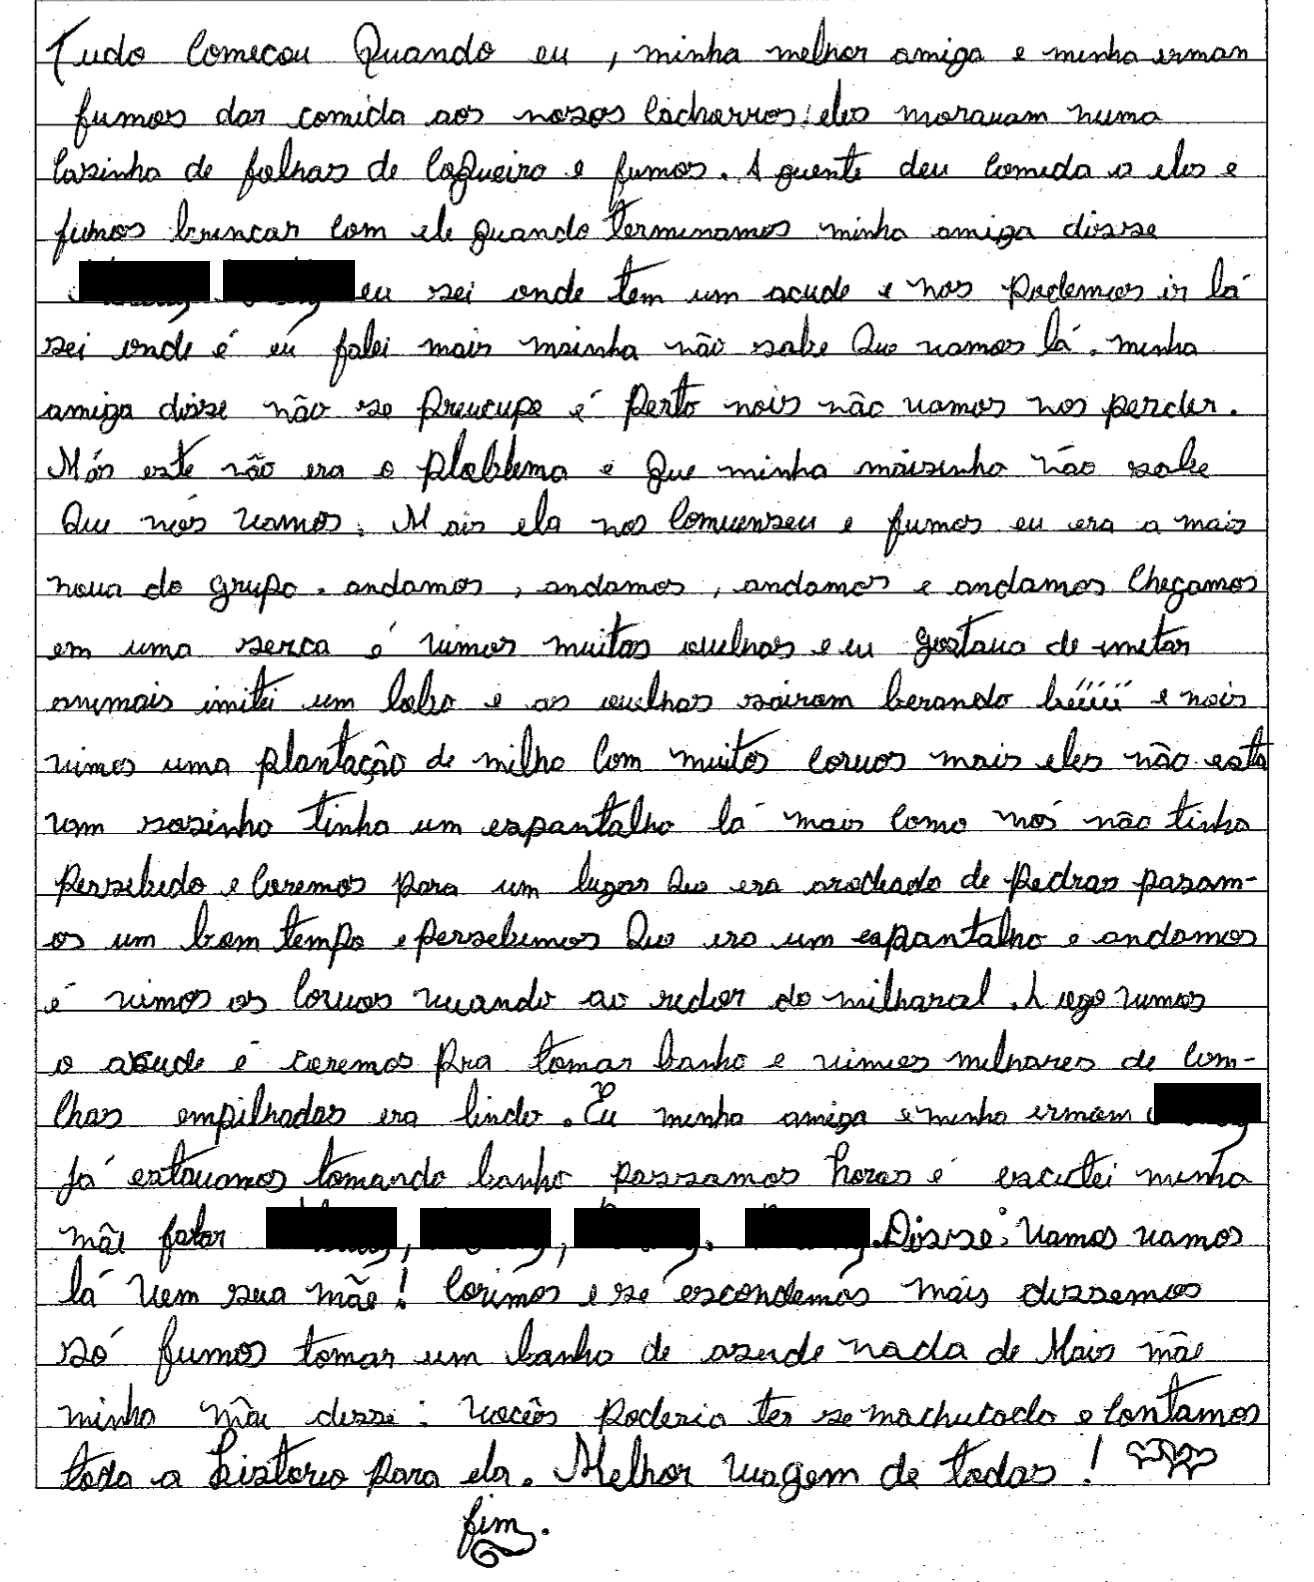 Tudo Comecou Quando eu , minha melhor amiga e minha irman
fumos dar comida aos nosos cachorros eles moravam numa
Casinha de folhas de Coqueiro e fumos. A guente deu comida a eles e
fumos brincar com ele quando terminamos minha amiga disse
eu sei onde tem um acude e nos Podemos ir lá
sei onde é eu falei mais mainha não sabe Que vamos lá. minha
amiga disse não se Preucupe é Perto nois não vamos nos perder.
Más este não era o ploblema é Que minha mãisinha não sabe
Que nós vamos. Mais ela nos Comvenseu e fumos eu era a mais
nova do grupo. andamos , andamos , andamos e andamos Chegamos
em uma serca é vimos muitas ovelhas e eu gostava de imitar
animais imitei um lobo e as ovelhas sairam berando bééééé e nois
vimos uma plantação de milho Com muitos corvos mais eles não esta
vam sosinho tinha um espantalho lá mais como nós não tinha
Persebido e Coremos para um lugar Que era arodiado de pedras pasam-
os um bom tempo e persebemos Que era um espantalho e andamos
é vimos os Corvos vuando ao redor do milharal. Logo vimos
o asude é coremos Pra tomar banho e vimos milhares de Com-
chas empilhadas era lindo. Eu minha amiga e minha irmam
já estavamos tomando banho passamos horas é escutei minha
mãe falar , , . . Disse: Vamos vamos
lá vem sua mãe! Corimos e se escondemos mais dissemos
só fumos tomar um banho de asude nada de Mais mãe
minha mãe disse: vocêis poderia ter se machucado e Contamos
toda a historia para ela. Melhor viagem de todas!
fim.